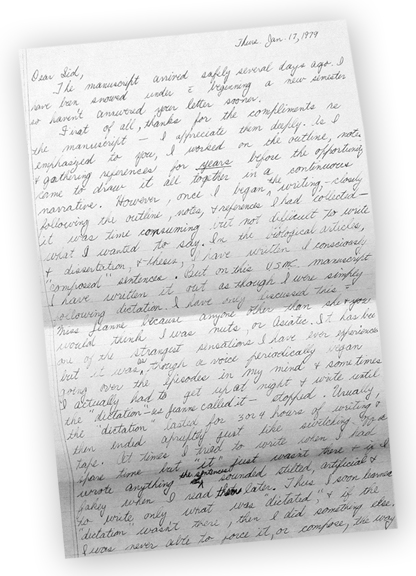 Thurs Jan. 17, 1979
Dear Sid,
The manuscript arrived safely several days ago. I
have been snowed under c̄ beginning a new semester
so haven't answered your letter sooner.
First of all, thanks for the compliments re
the manuscript — I appreciate them deeply. As I
emphasized to you, I worked on the outline, notes
& gathering references for years before the opportunity
came to draw it all together in a continuous
narrative. However, once I began the writing — closely
following the outline, notes, & references I had collected —
it was time consuming but not difficult to write
what I wanted to say. In the biological articles,
& dissertation, & thesis, I have written I consciously
"composed" sentences. But on this USMC manuscript
I have written it out as though I were simply
following dictation. I have only discussed this c̄
Miss Jeanne because anyone other than she & you
would think I was nuts, or Asiatic. It has been
one of the strangest sensations I have ever experienced
but it was as though a voice periodically began
going over the episodes in my mind & sometimes
I actually had to get up at night & write until
the "dictation" – as Jeanne called it – stopped. Usually,
the "dictation" lasted for 3 or 4 hours of writing &
then ended abruptly just like switching off a
tape. At times I tried to write when I had
spare time but it just wasn't there & if I
wrote anything the sentences sounded stilted, artificial &
fakey when I read them later. Thus I soon learned
to write only what was "dictated" & if the
dictation" wasn't there, then I did something else.
I was never able to force it, or compose, the way